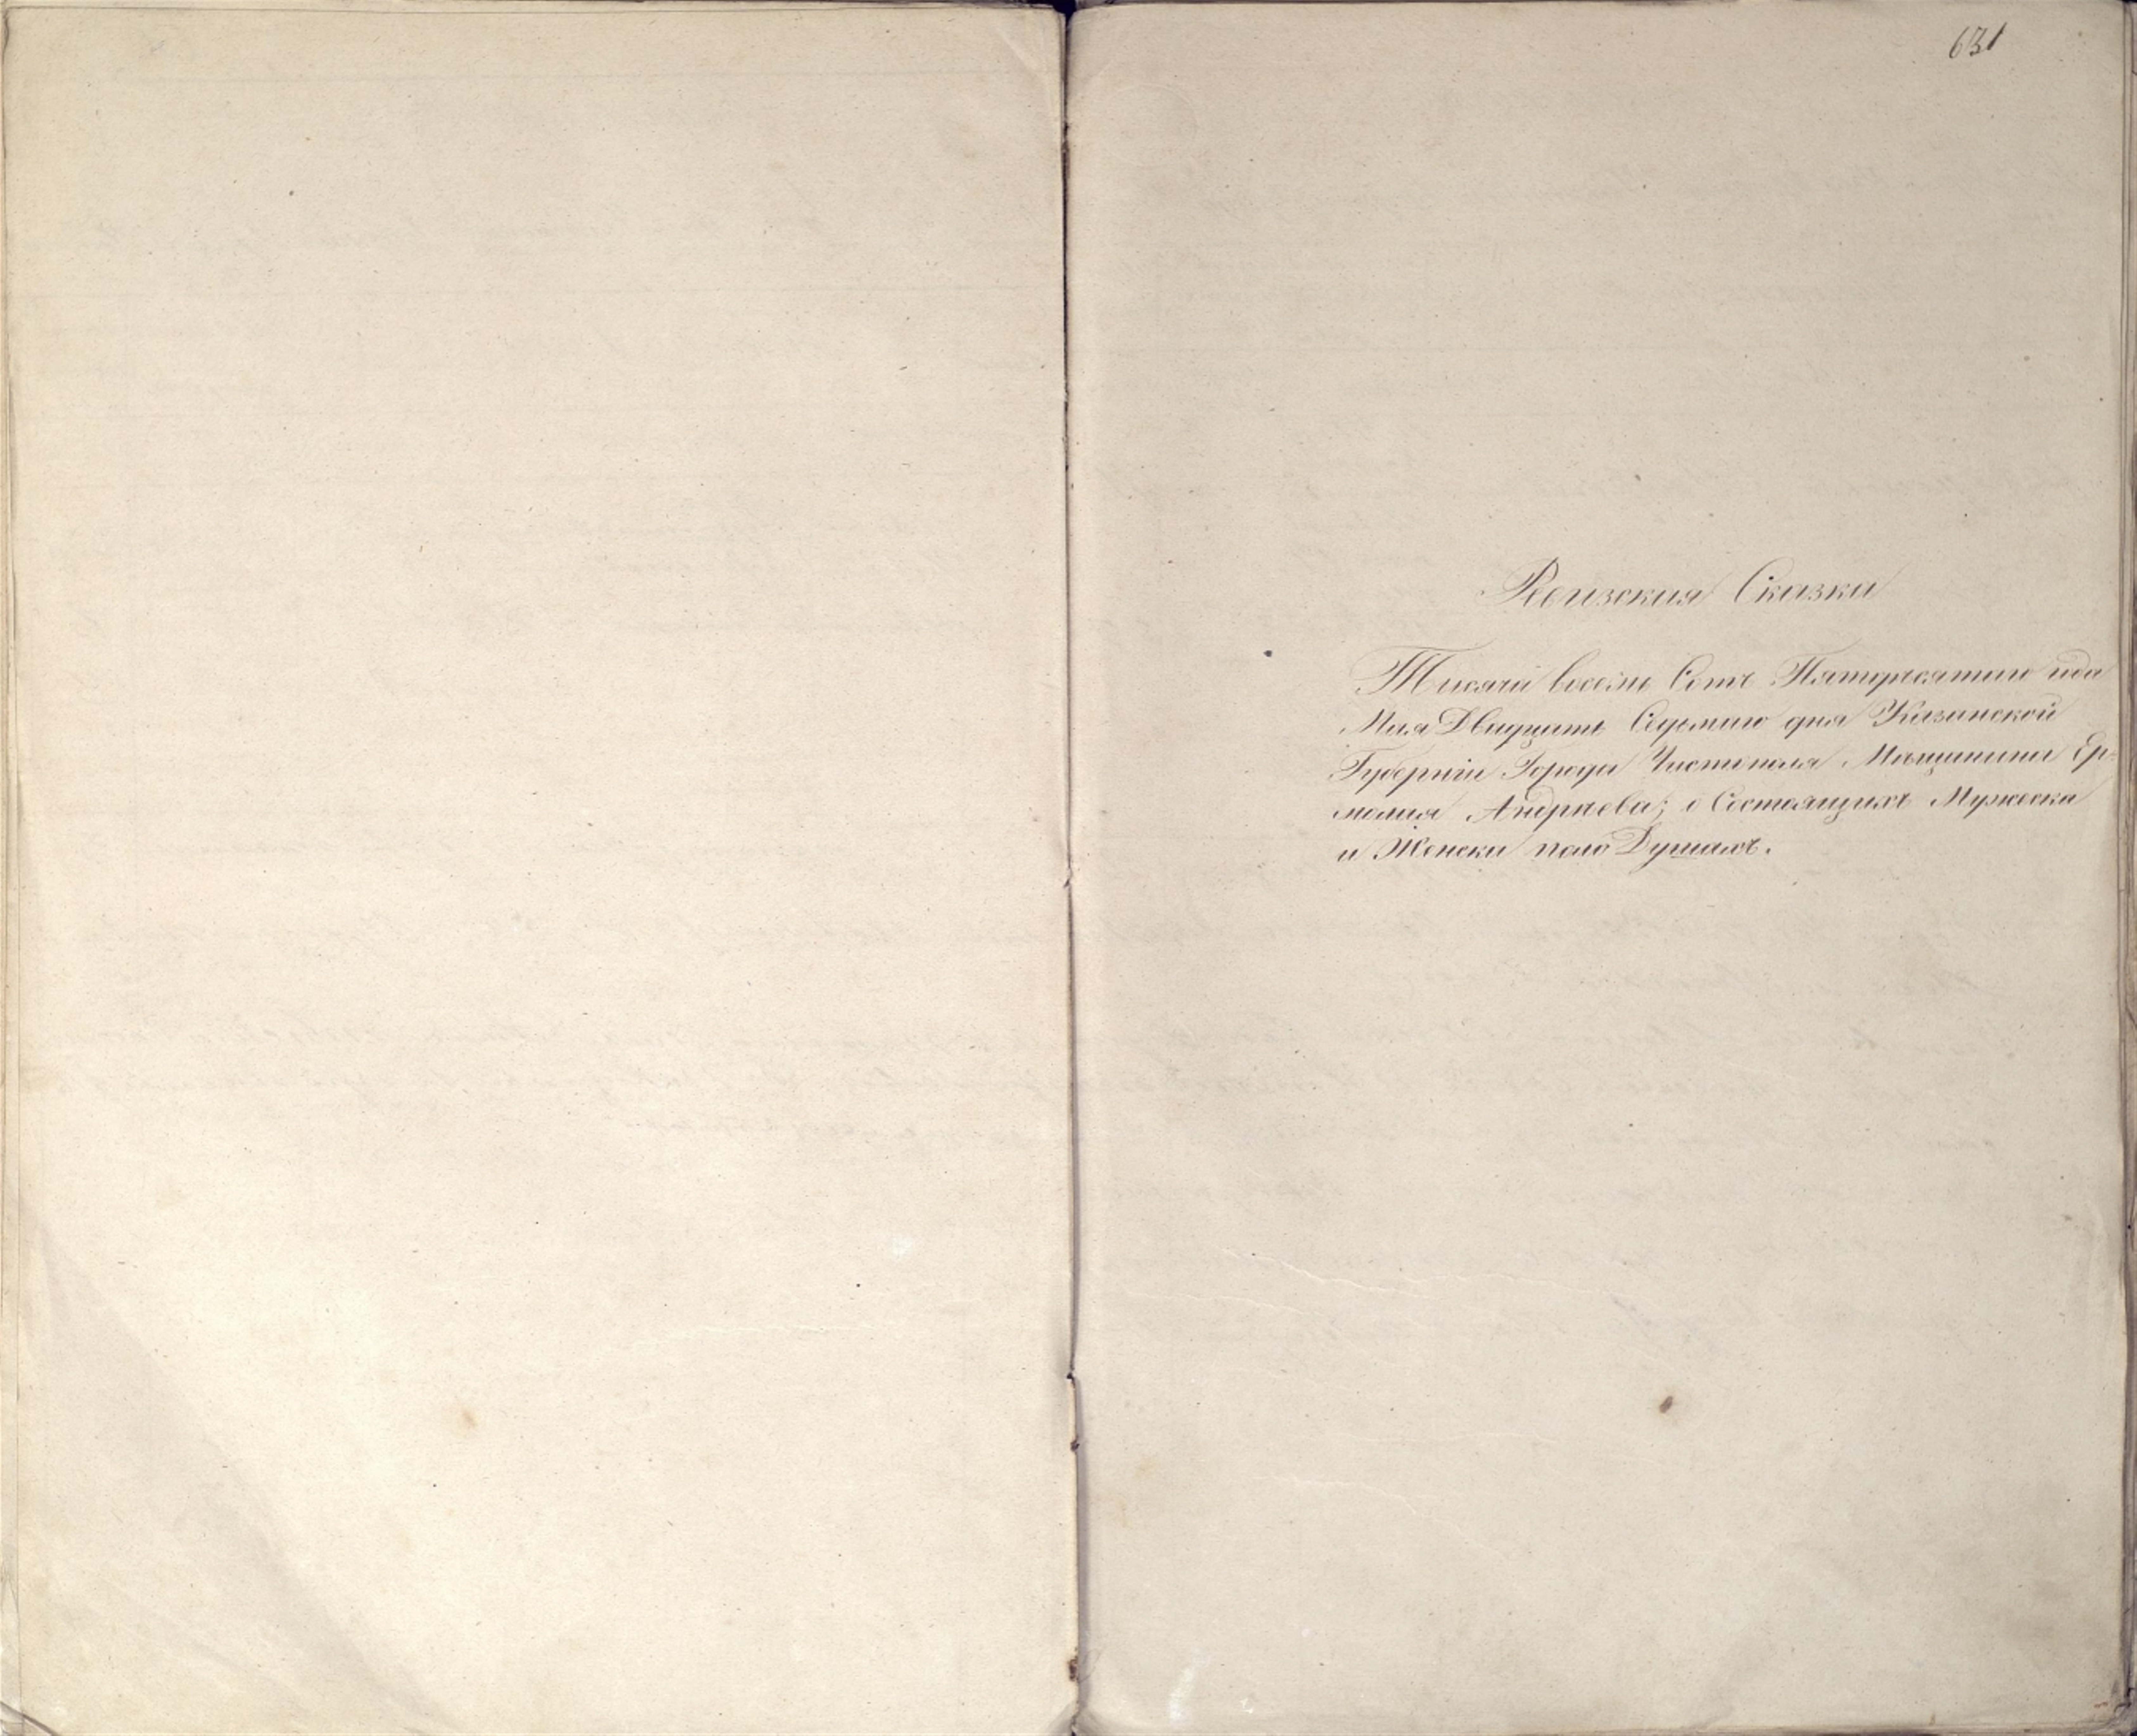 631
Ревизская Сказка
Тысяча восемь Сотъ Пятидесятого года
Мая Двадцать Седьмаго дня Казанской
Губерніи Города Чистополя Мѣщанина Ер-
молая Андрѣева; о Состоящихъ Мужеска
и Женска пола Душахъ.